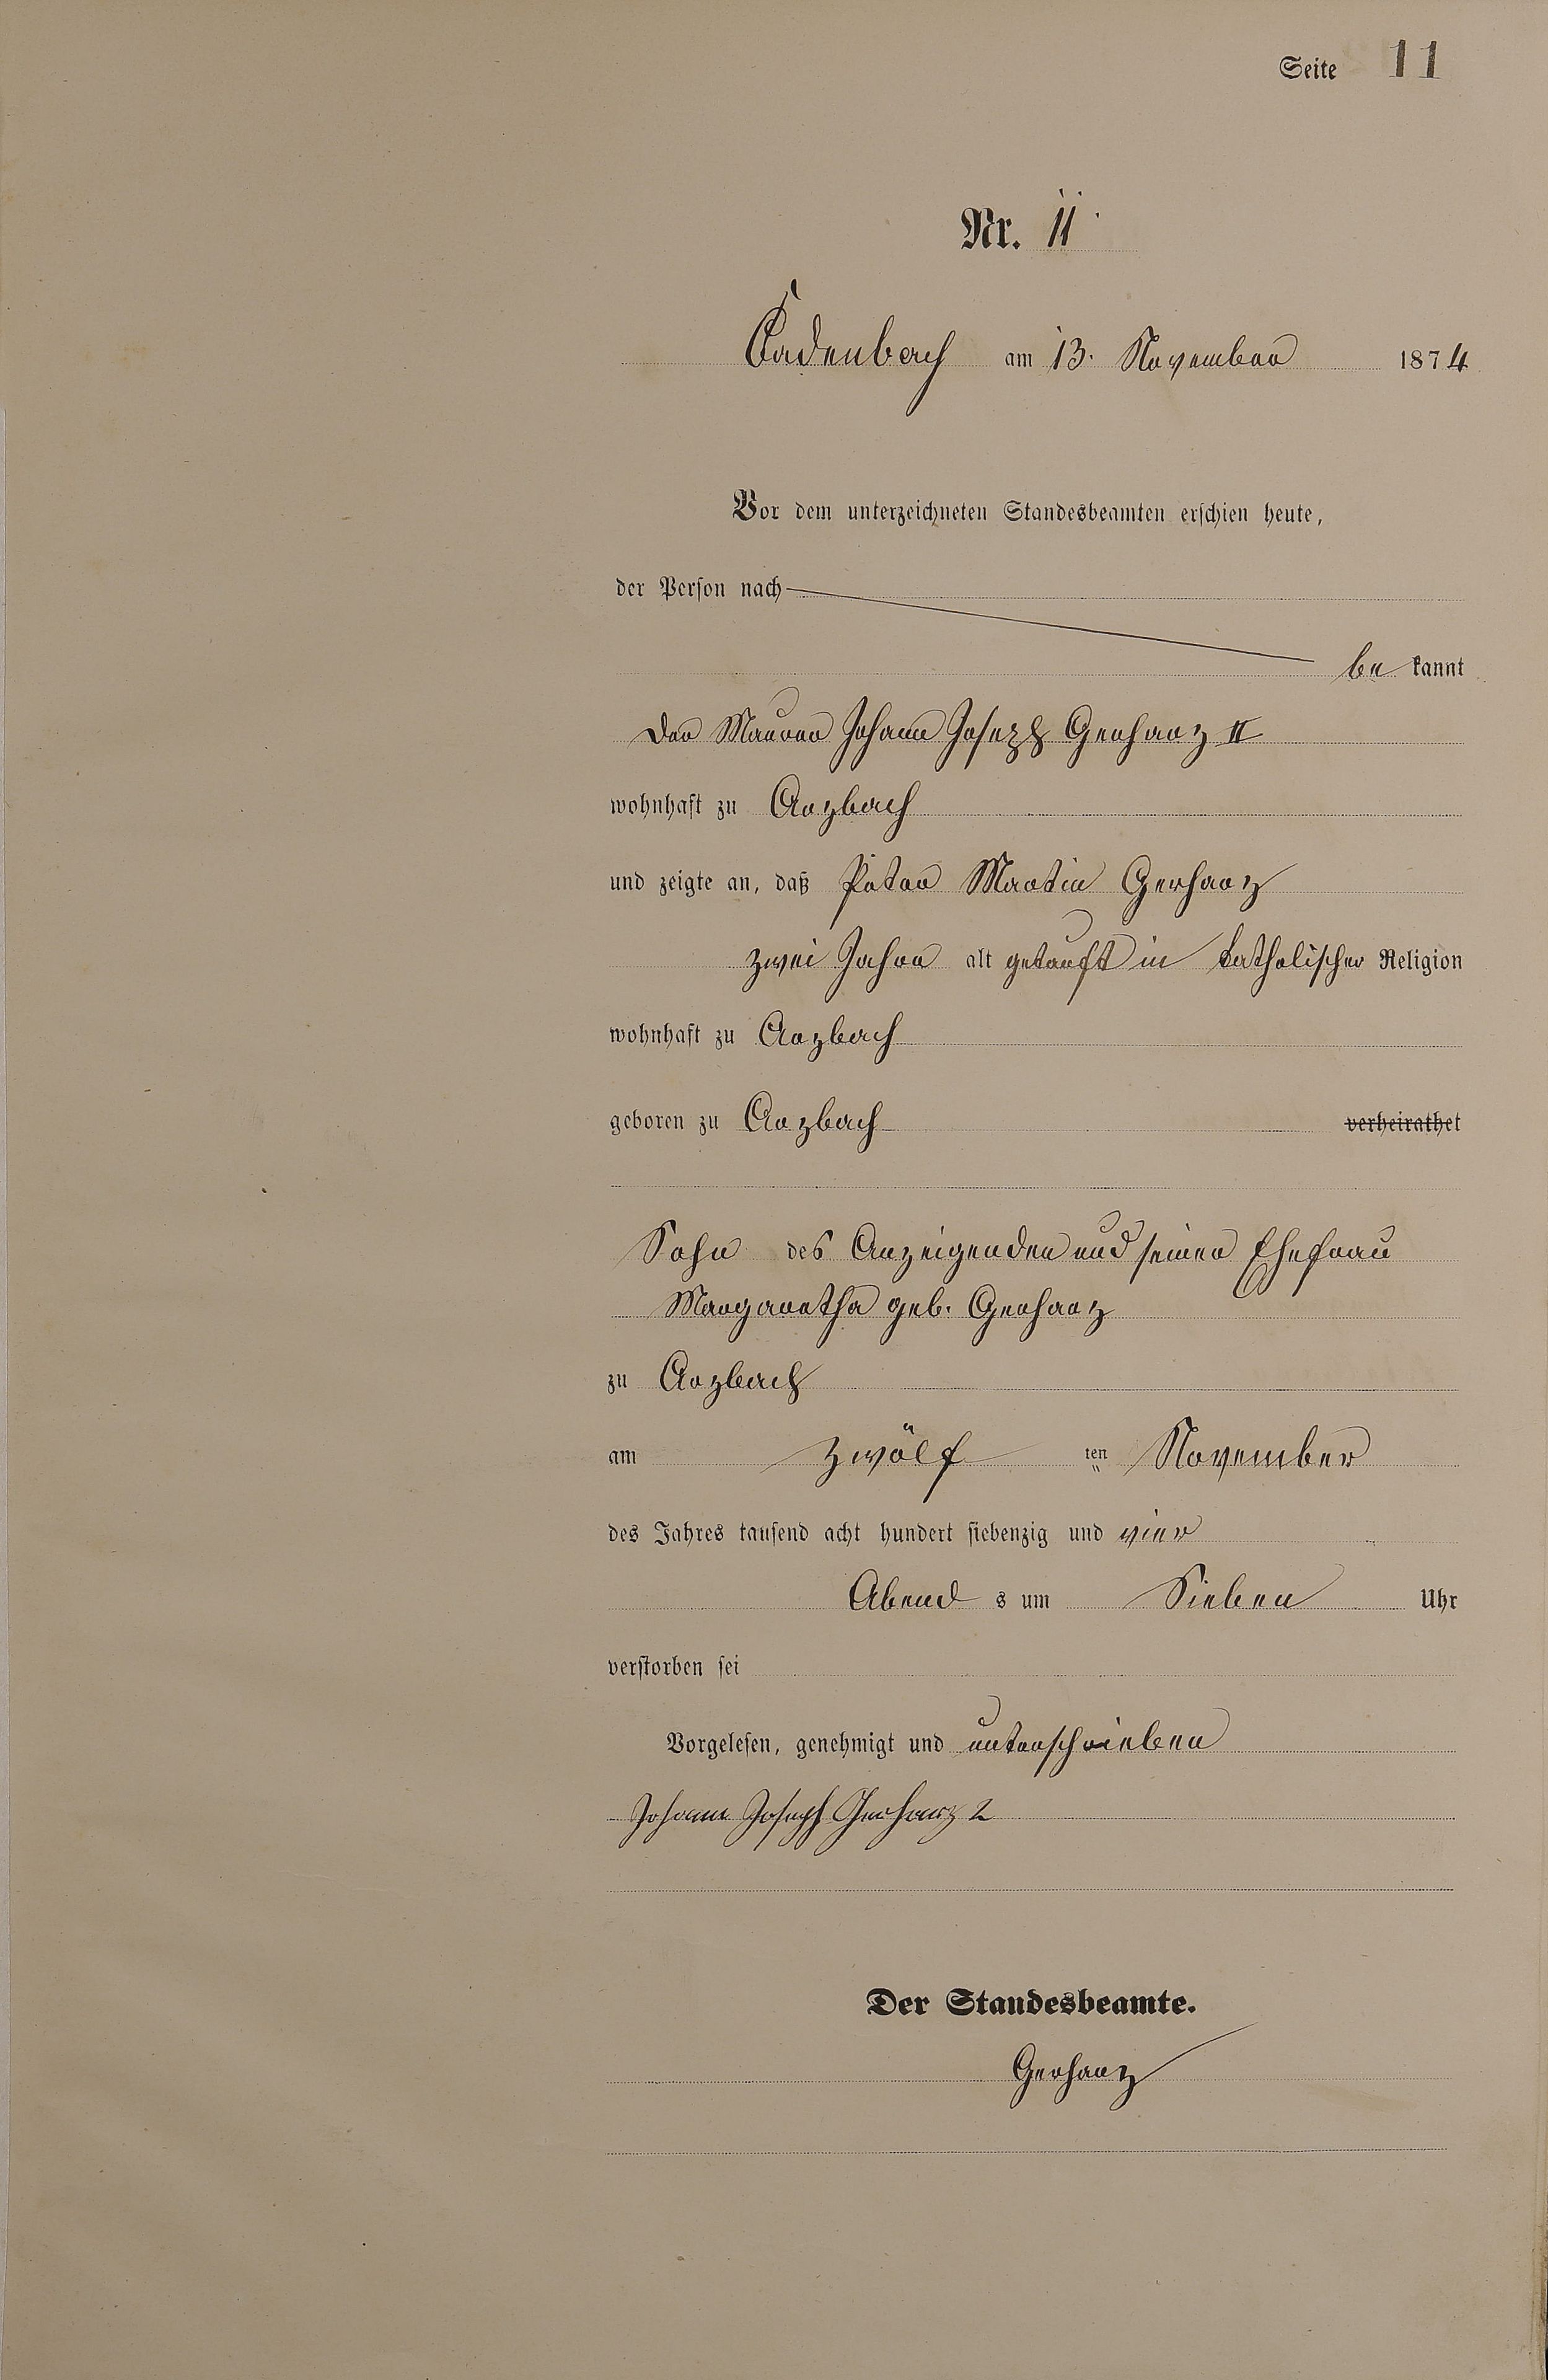 Seite 11
Nr. 11
Cadenbach am 13. November 1874
Vor dem unterzeichneten Standesbeamten erschien heute,
der Person nach
be kannt
der Maurer Johann Joseph Gerharz II
wohnhaft zu Arzbach
und zeigte an, daß Peter Martin Gerharz
zwei Jahre alt getauft in katholischer Religion
wohnhaft zu Arzbach
geboren zu Arzbach verheirathet
Sohn des Anzeigenden und seiner Ehefrau
Margaretha geb. Gerharz
zu Arzbach
am zwölf ten November
des Jahres tausend acht hundert siebenzig und vier
Abend s um Sieben Uhr
verstorben sei
Vorgelesen, genehmigt und unterschrieben
Johann Joseph Gerharz 2
Der Standesbeamte.
Gerharz